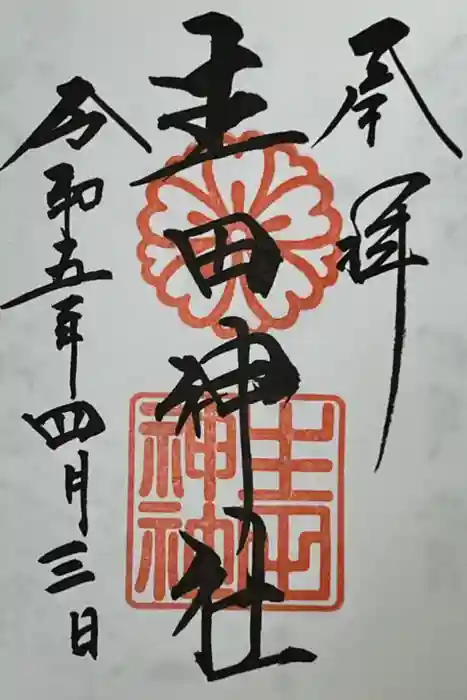 奉拝
生田神社
令和五年四月三日
生田
神社